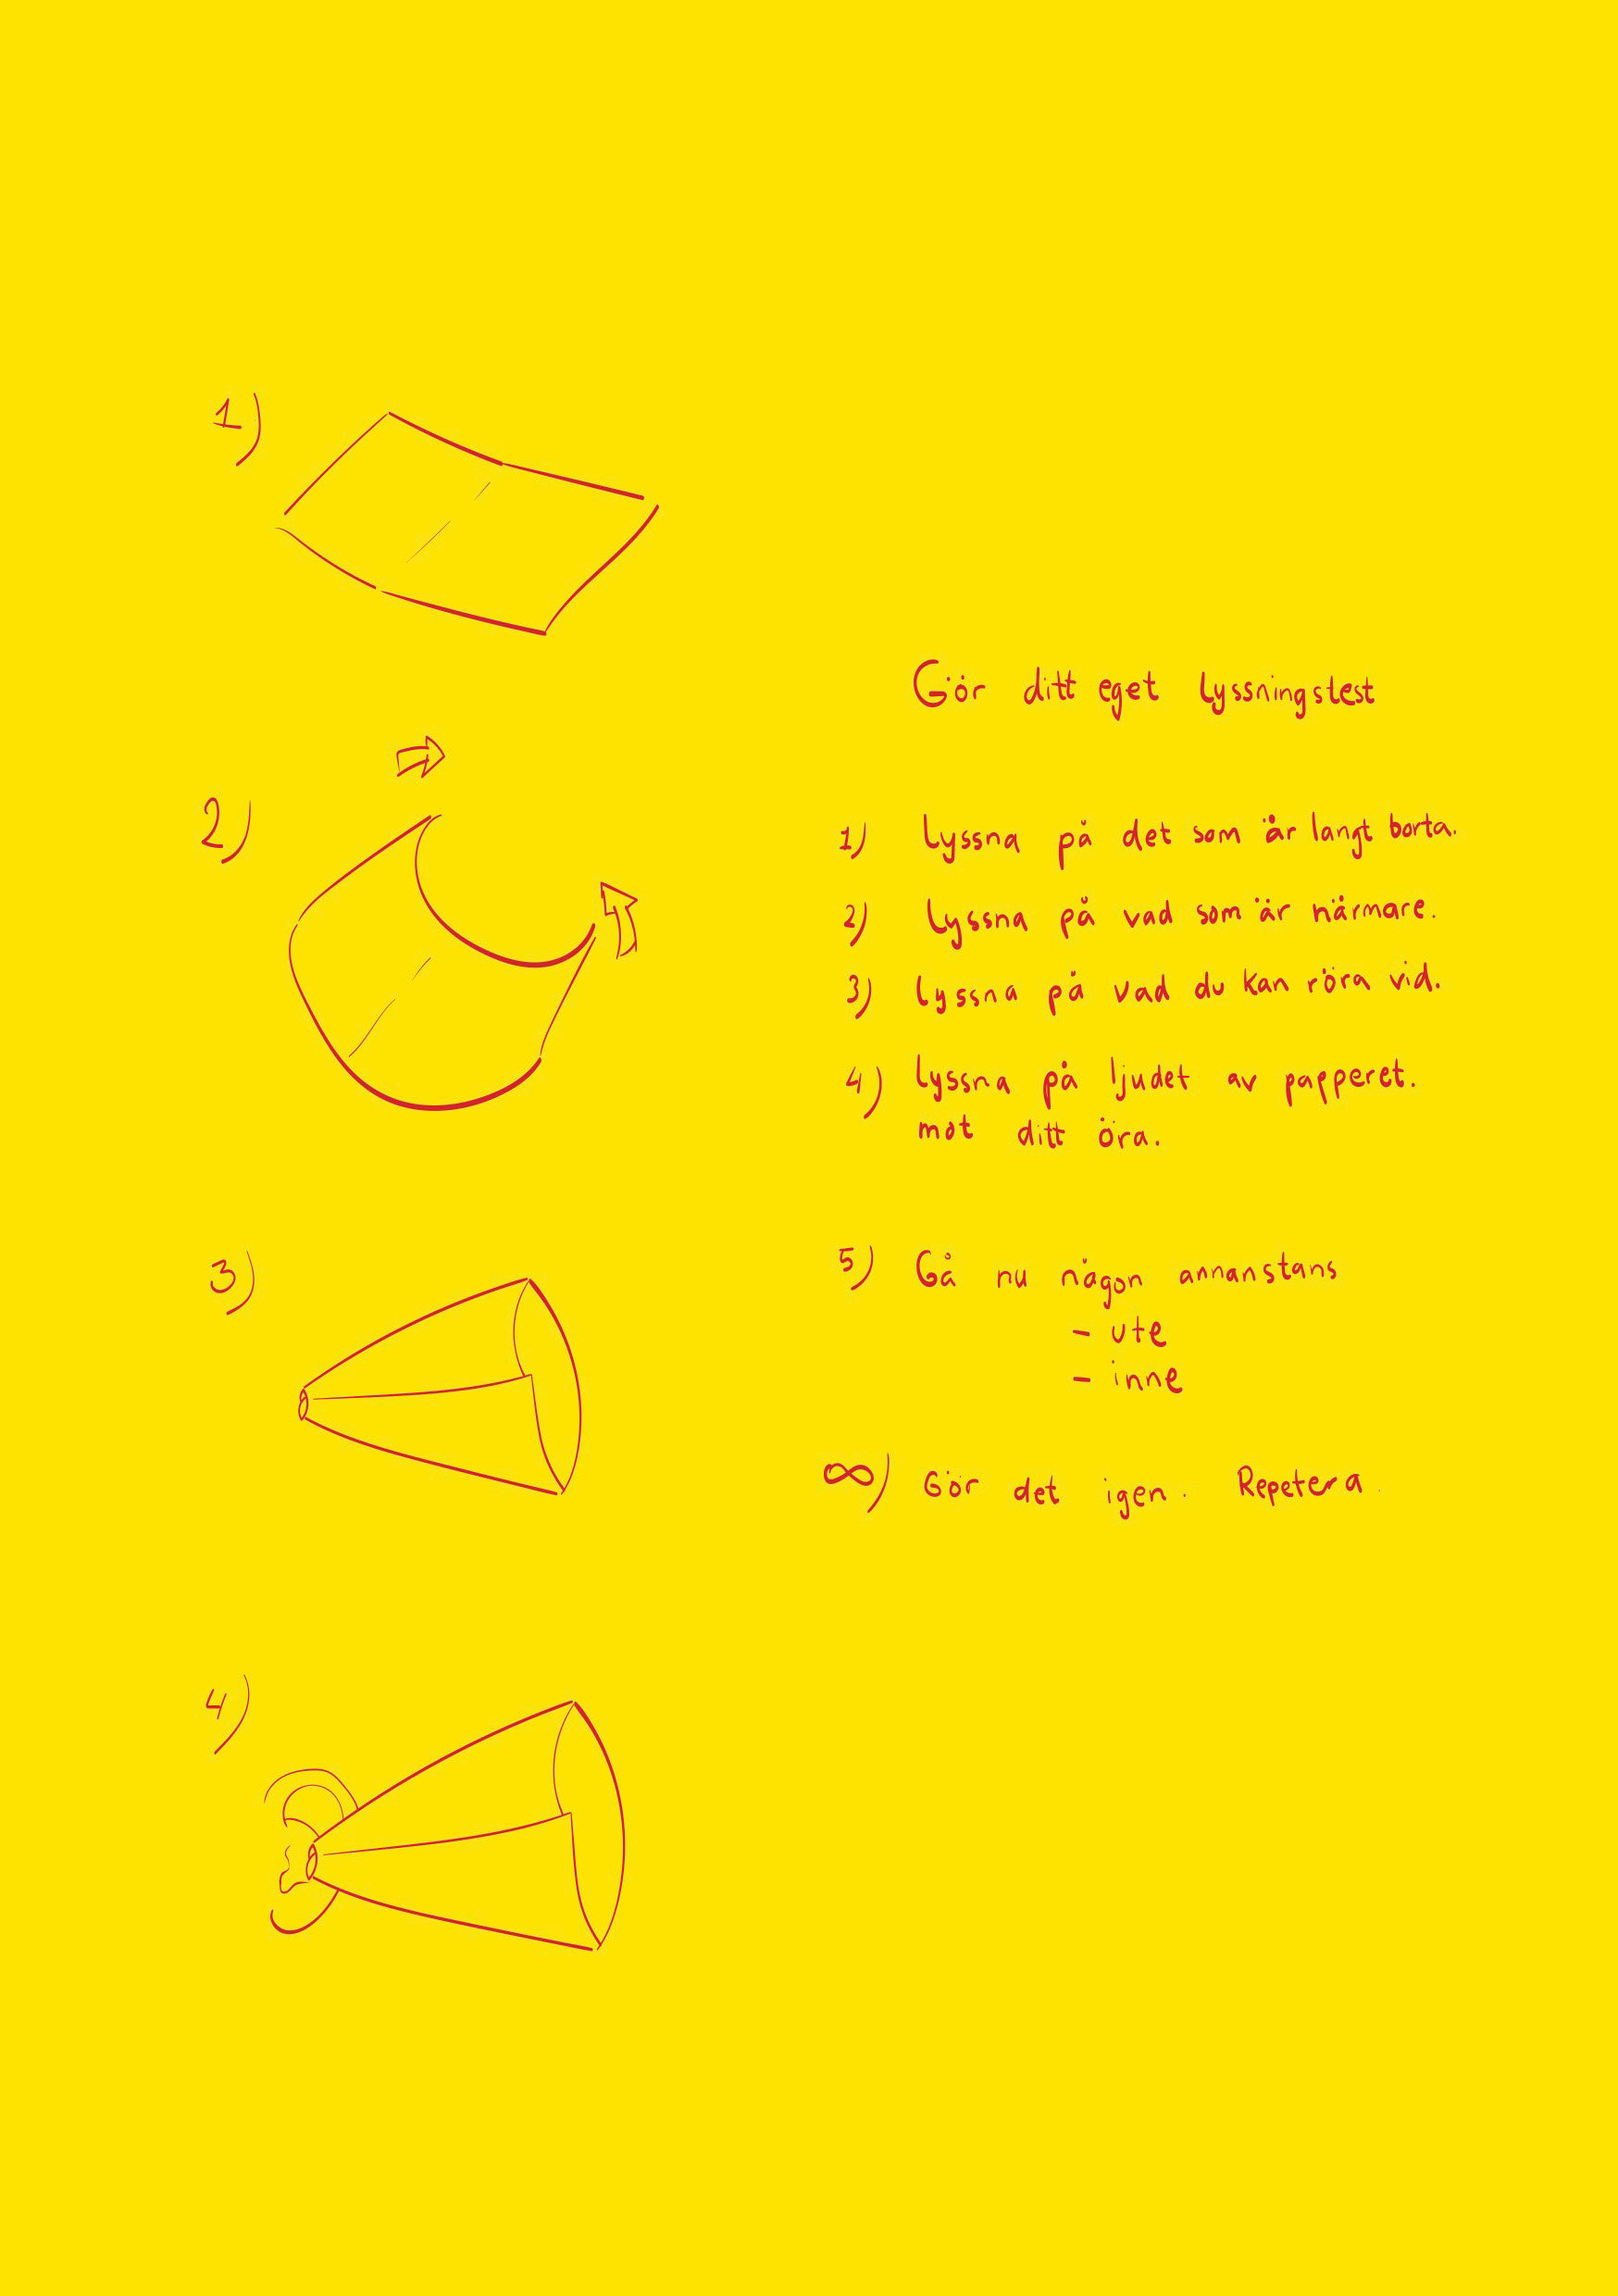 1)
2)
3)
4)
Gör ditt eget lyssningstest
1) Lyssna på det som är langt borta.
2) Lyssna på vad som är närmare.
3) Lyssna på vad du kan röra vid.
4) Lyssna på ljudet av papperet.
mot ditt öra.
5) Gå nu någon annanstans
- ute
- inne
∞) Gör det igen. Repetera.